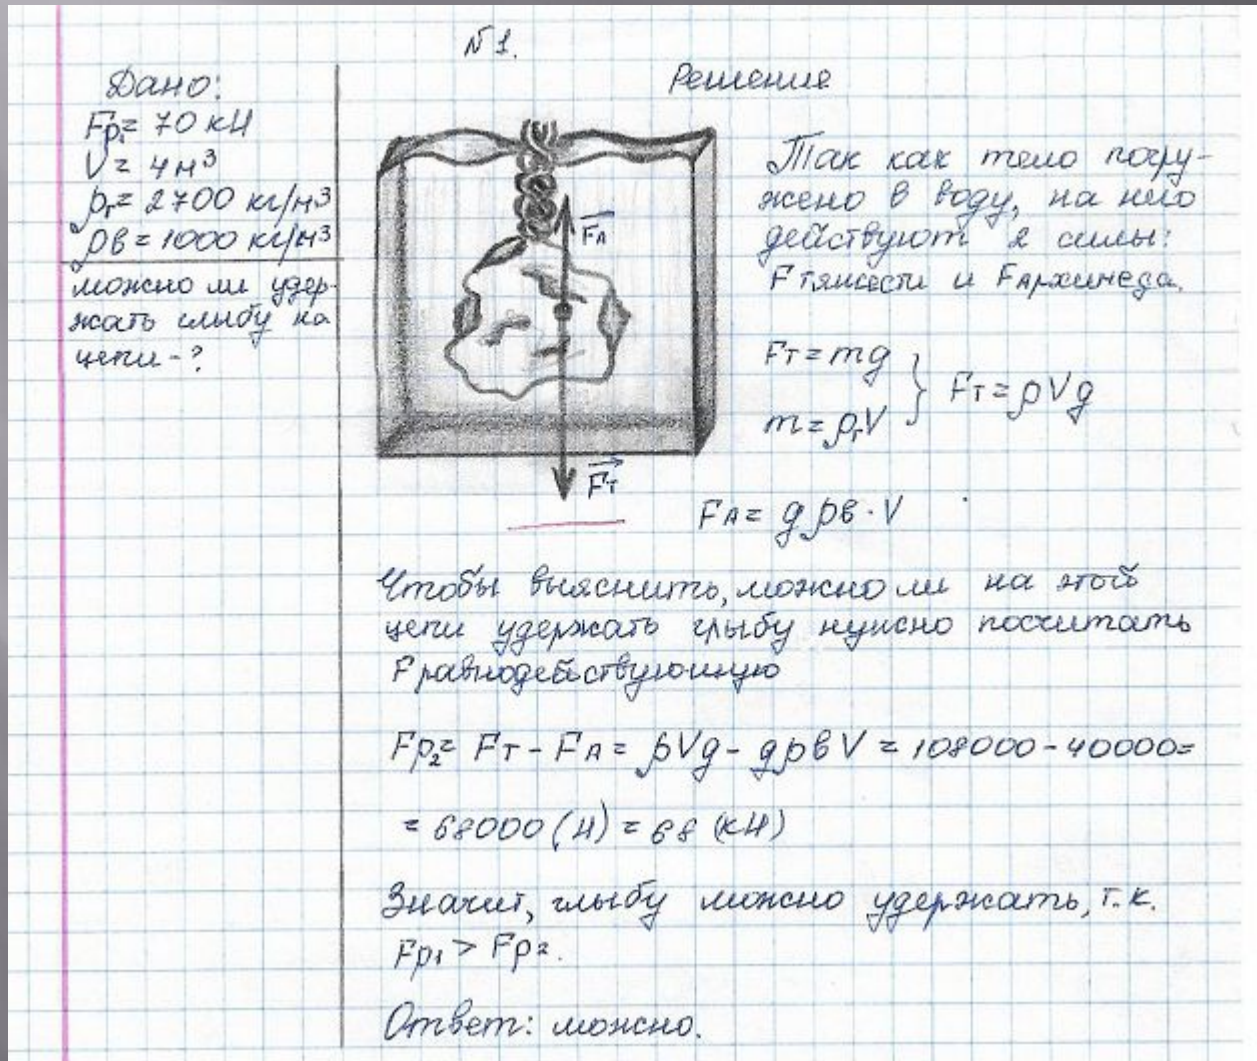 №1.
Дано:
Fр₁= 70 кН
V = 4 м³
ρг = 2700 кг/м³
ρв = 1000 кг/м³
можно ли удер-
жать глыбу на
цепи - ?
Решение
Fᴀ
Fт
Так как тело погру-
жено в воду, на него
действуют 2 силы:
Fтяжести и FАрхимеда.
Fт = mg
m = ρгV
} Fт = ρVg
Fᴀ = gρв · V
Чтобы выяснить, можно ли на этой
цепи удержать глыбу нужно посчитать
F равнодействующую
Fр₂ = Fт - Fᴀ = ρVg - gρвV = 108000 - 40000 =
= 68000 (Н) = 68 (кН)
Значит, глыбу можно удержать, т.к.
Fр₁ > Fр₂.
Ответ: можно.